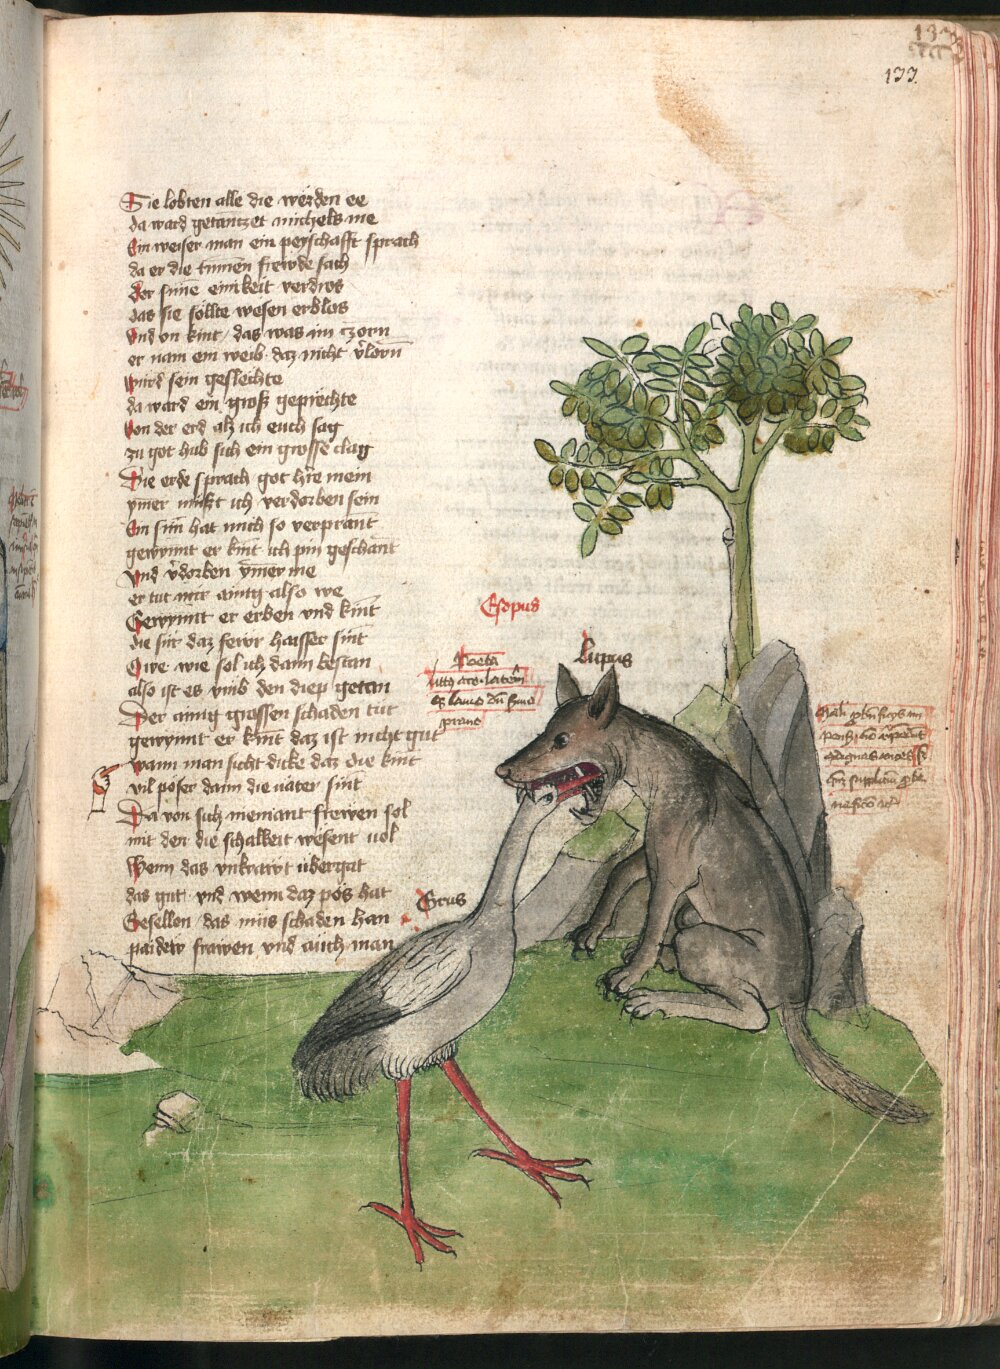 133
133
Sie lobten alle die werden ee
da ward getantzet michels me
Ein weiser man ein peyschafft sprach
da er die tummen frewde sach
der sunne einikeit verdros
das sie sollte wesen erblos
Und on kint / das was im zorn
er nam ein weib daz nicht v̓lorn
wurd sein geslechte
da ward ein gross geprechte
von der erd alz ich euch sag
zu got hub sich ein grosse clag
Die erde sprach got h̓re mein
ymer musst ich verdorben sein
Ein sun̄ hat mich so verprant
gewynnt er kint ich pin geschant
und v̓dorben ymer me
er tut mir ainig also we
Gewynnt er erben und kint
die sur daz fewr haisser sint
Owe wie sol ich dann bestan
also ist es umb den diep getan
Der ainig grossen schaden tut
gewynnt er kint daz ist nicht gut
wann man sicht dicke daz die kint
vil pöser dann die väter sint
Da von sich niemant frewen sol
mit den die schalkeit wesent vol
Wenn das unkrawt ubergat
das gut und wenn daz pos hat
Gesellen / das mus schaden han
paidew frawen und auch man
Esopus
Poeta
Lupus
Grus